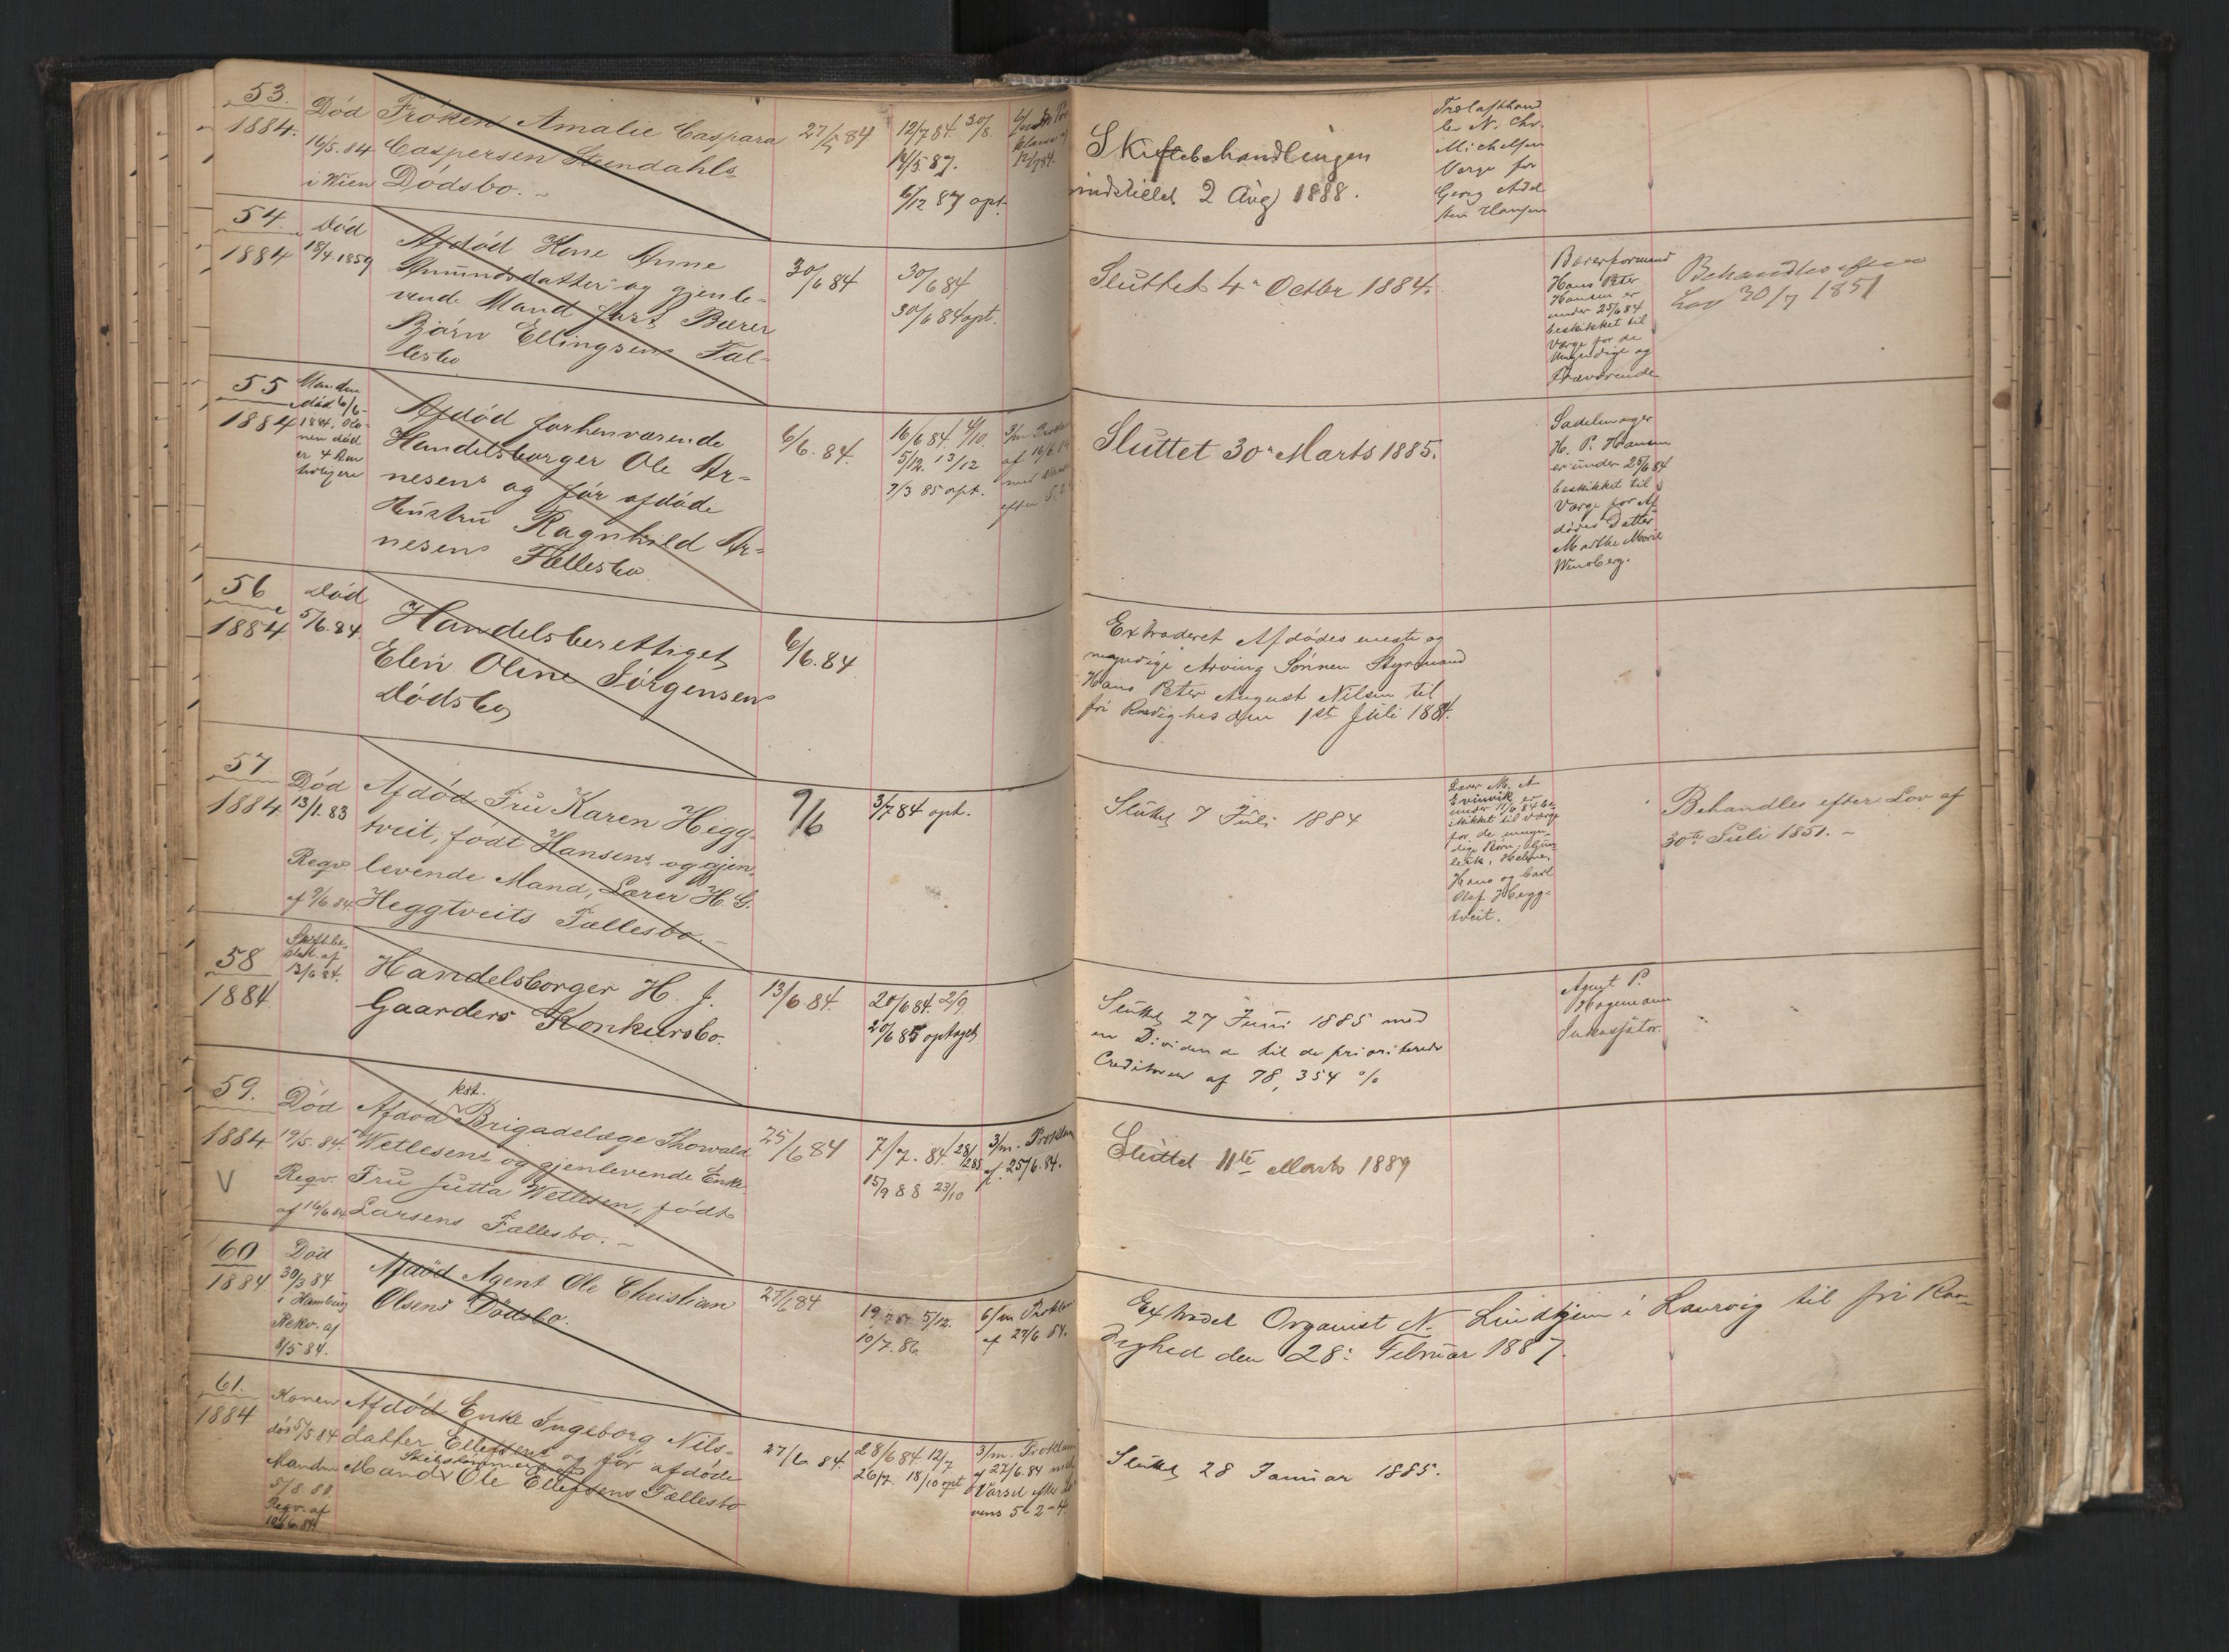 53.
1884.
Død
16/5.84
i Wien
Frøken Amalie Caspara
Caspersen Steendahls
Dødsbo.
27/5 84
12/7 84. 30/8.
14/5 87.
6/12 87 opt.
12/7 84.
Skiftebehandlingen
indstillet 2 Aug 1888.
Trælasthand
ler N. Chr.
Michelsen
Verge for
Georg
Hansen
54.
1884
Død
18/4 1859
Afdød Kone Anne
Amundsdatter og gjenle-
vende Mand først Bærer
Bjørn Ellingsens Fæl-
lesbo
30/6 84
30/6 84
30/6 84 opt.
Sluttet 4. Octbr 1884.
Bærerformand
Hans Peter
Hansen er
under 25/6 84
beskikket til
Værge for de
Umyndige og
Fraværende
Behandles efter
Lov 30/7 1851
55
1884
Manden
død 6/6
1884. Ko-
nen død
er 4 Aar
tidligere
Afdød forhenværende
Handelsborger Ole Ar-
nesens og før afdøde
Hustru Ragnhild Ar-
nesens Fællesbo
6/6.84.
16/6 84. 4/10.
5/12. 13/12
7/3 85 opt.
3/m Proklam
af 16/6 84
med
efter
Sluttet 30. Marts 1885.
Sadelmager
H. P. Hansen
er under 25/6 84
beskikket til
Værge for Af
dødes Datter
Marthe Marie
Winsberg.
56
1884
Død
5/6.84
Handelsberettiget
Elen Oline Jørgensens
Dødsbo
6/6.84
Extraderet Afdødes eneste og
myndige Arving Sønnen Styrmand
Hans Peter August Nilsen til
fri Raadighed den 1ste Juli 1884.
57
1884.
Død
13/1.83
Reqv
af 9/6 84.
Afdød Fru Karen Hegg-
tveit, født Hansens og gjen-
levende Mand, Lærer H. G.
Heggtveits Fællesbo.
9/6
3/7 84 opt.
Sluttet 7 Juli 1884
Lærer M. A.
er
under 11/6 84 be
skikket til Værge
for de umyn-
dige Børn:
Helene,
Hans og Carl
Olaf Hegg-
tveit.
Behandles efter Lov af
30te Juli 1851.
58
1884
Skiftebe-
slutn. af
13/6 84.
Handelsborger H. J.
Gaarders Konkursbo.
13/6 84.
20/6 84. 2/9.
20/6 85 optaget
Sluttet 27 Juni 1885 med
en Dividende til de prioriterede
Creditorer af 78,354 %
Agent P.
Hagemann
Inkassator.
59.
1884
V
Død
19/5.84.
Reqv.
af 16/6 84
kst.
Afdød Brigadelæge Thorvald
Wetlesens og gjenlevende Enke
Fru Jutta Wetlesen, født
Larsens Fællesbo.
25/6 84
7/7.84. 28/1 85
15/9 88 23/10
3/m. Proklam
af 25/6.84.
Sluttet 11te Marts 1889
60
1884
Død
30/3 84
i Hamburg
Rekv. af
8/5 84.
Afdød Agent Ole Christian
Olsens Dødsbo.
27/6 84
5/12.
10/7.86.
6/m Proklam
af 27/6 84.
Extradet Organist N. Lindhjem i Laurvig til fri Raa-
dighed den 28: Februar 1887.
61.
1884
Konen
død 5/5 84
Manden
5/8 80
Reqv. af
10/6.84
Afdød Enke Ingeborg Nils-
datter Ellefsens og før afdøde
Skibstømmermand
Mand Ole Ellefsens Fællesbo
27/6 84.
28/6 84 12/7
26/7. 18/10 opt
3/m. Proklam
af 27/6.84 med
Varsel efter Lo
vens 5-2-4.
Sluttet 28 Januar 1885.